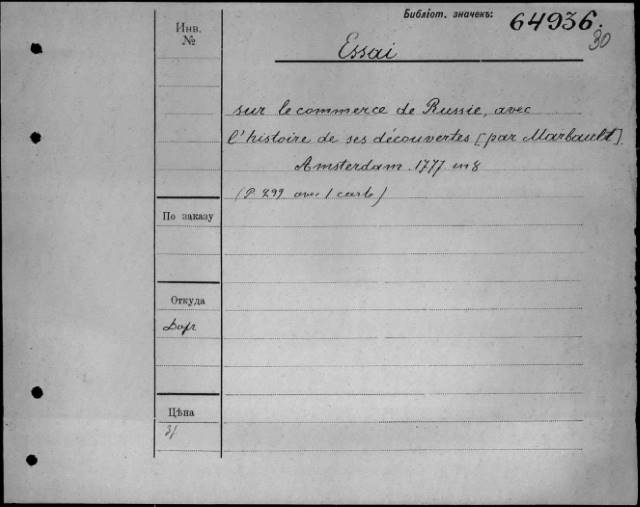 Библіот. значекъ: 64936.
30
Инв.
№
Essai
sur le commerce de Russie, avec
l'histoire de ses découvertes [par Marbault].
Amsterdam. 1777. in 8
(P. 299 avec 1 carte)
По заказу
Откуда
Цѣна